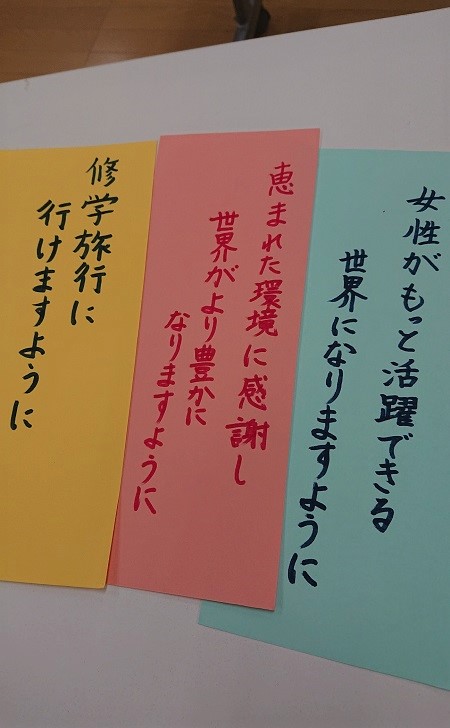 女性がもっと活躍できる
世界になりますように
恵まれた環境に感謝し
世界がより豊かに
なりますように
修学旅行に
行けますように